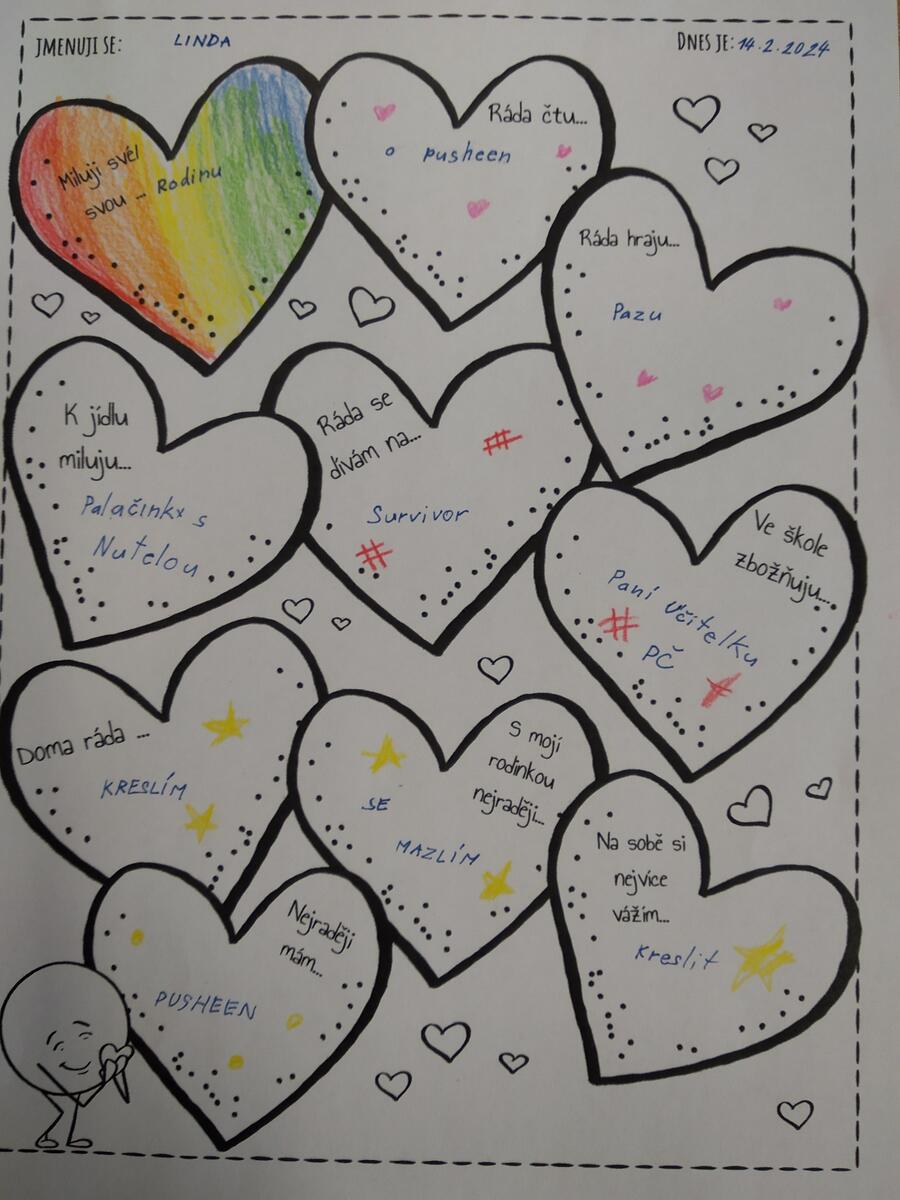 JMENUJI SE: LINDA
DNES JE: 14.2.2024
Miluji své/
svou ... Rodinu
Ráda čtu...
o pusheen
Ráda hraju...
Pazu
K jídlu
miluju...
Palačinkx s
Nutelou
Ráda se
dívám na...
Survivor
Ve škole
zbožňuju...
Paní Učitelku
PČ
Doma ráda ...
KRESLÍM
S mojí
rodinkou
nejraději...
SE
MAZLÍM
Na sobě si
nejvíce
vážím...
Kreslit
Nejraději
mám...
PUSHEEN